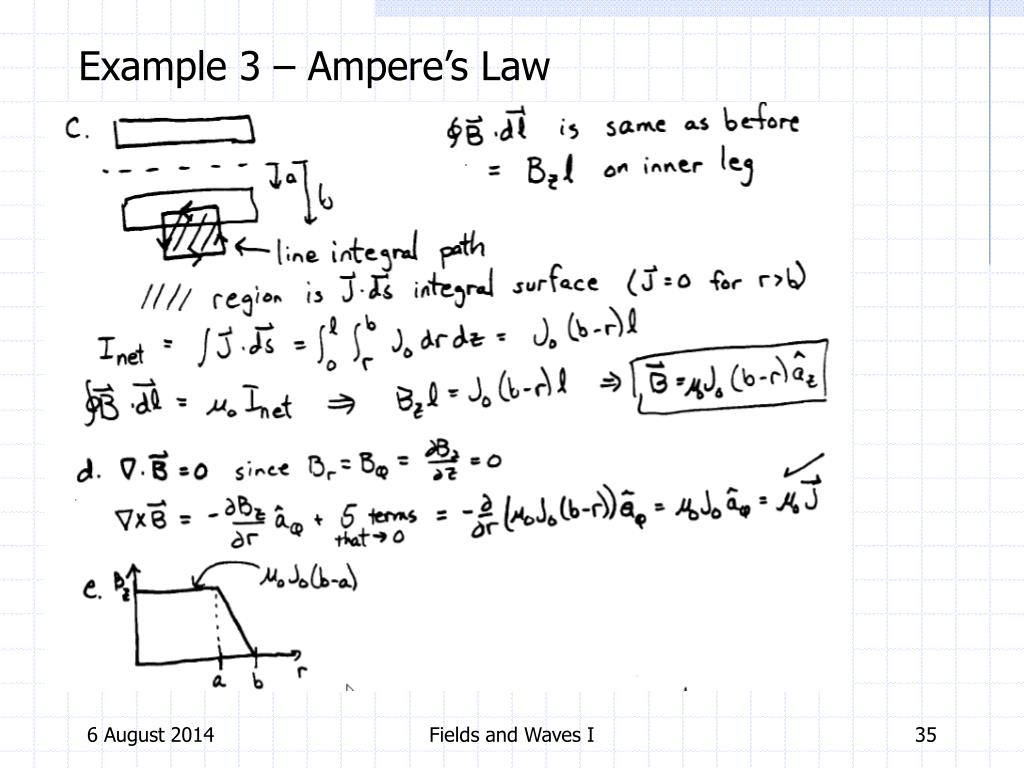 Example 3 – Ampere's Law
c.
a
b
∮B⃗ · d⃗l is same as before
= B_z l on inner leg
← line integral path
//// region is J⃗ · d⃗s integral surface (J⃗ = 0 for r > b)
I_net = ∫ J⃗ · d⃗s = ∫_0^l ∫_r^b J_0 dr dz = J_0 (b-r) l
∮B⃗ · d⃗l = μ_0 I_net ⇒ B_z l = J_0 (b-r) l ⇒ B⃗ = μ_0 J_0 (b-r) â_z
d. ∇ · B⃗ = 0 since B_r = B_φ = ∂B_z/∂z = 0
∇×B⃗ = -∂B_z/∂r â_φ + 5 terms that → 0 = -∂/∂r (μ_0 J_0 (b-r)) â_φ = μ_0 J_0 â_φ = μ_0 J⃗ ✓
e. B_z
μ_0 J_0 (b-a)
a b r
6 August 2014
Fields and Waves I
35